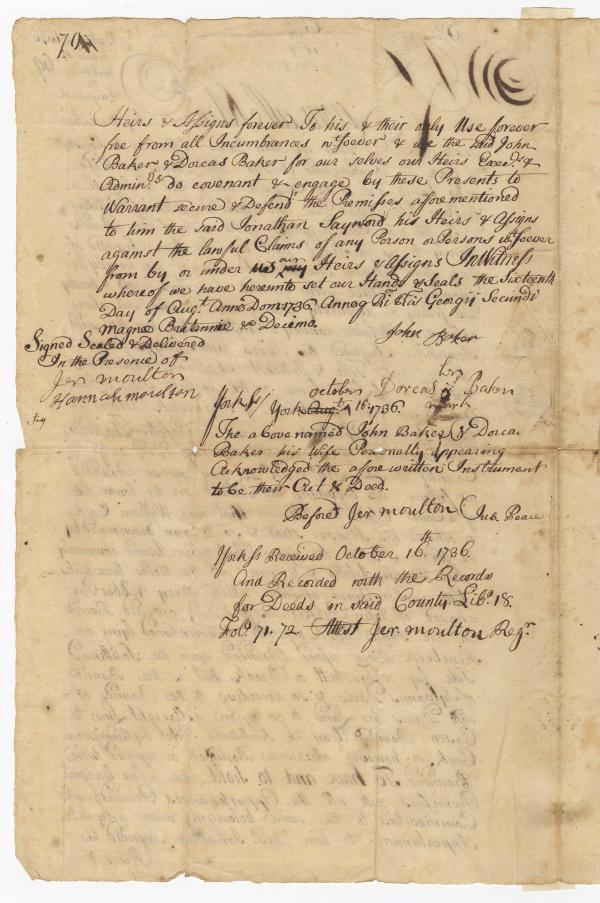 70
Heirs & Assigns forever To his & their only Use forever
free from all Incumbrances wt.soever & we the said John
Baker & Dorcas Baker for our selves our Heirs Execrs. &
Adminrs. do covenant & engage by these Presents to
Warrant secure & Defend the Premisses aforementioned
to him the said Jonathan Sayword his Heirs & Assigns
against the lawful Claims of any Person or Persons wt.soever
from by or under our Heirs & Assigns In Witness
whereof we have hereunto set our Hands & Seals the Sixteenth
Day of Augt. Anno Dom: 1736. Annoq Ri Ris Georgij Secundi
Magnæ Britanniæ &c Decimo.
John Baker
Signed Sealed & Delivered
In the Presence of
Jer moulton
Hannah moulton
her
Dorcas Baker
mark
York Ss/ October
York Augt. 16: 1736.
The above named John Baker & Dorcas
Baker his Wife Personally appearing
Acknowledged the afore written Instrument
to be their Act & Deed.
Before Jer moulton Jus. Peace
York Ss Received October 16th. 1736.
And Recorded with the Records
for Deeds in said County Libo. 18.
Folo. 71. 72 Attest Jer. moulton Regr.